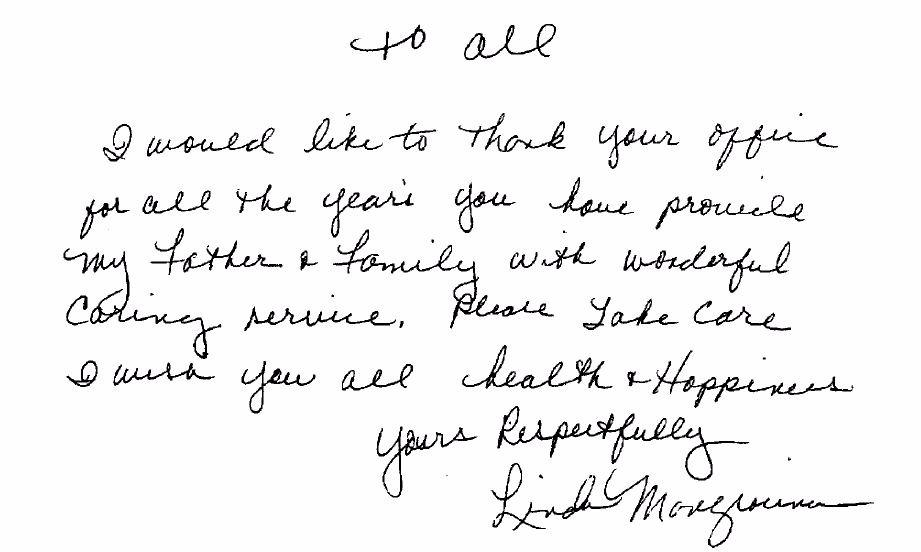 to all
I would like to thank your office
for all the years you have provide
My Father & Family with wonderful
Caring service. Please Take Care
I wish you all health & Happiness
Yours Respectfully
Linda